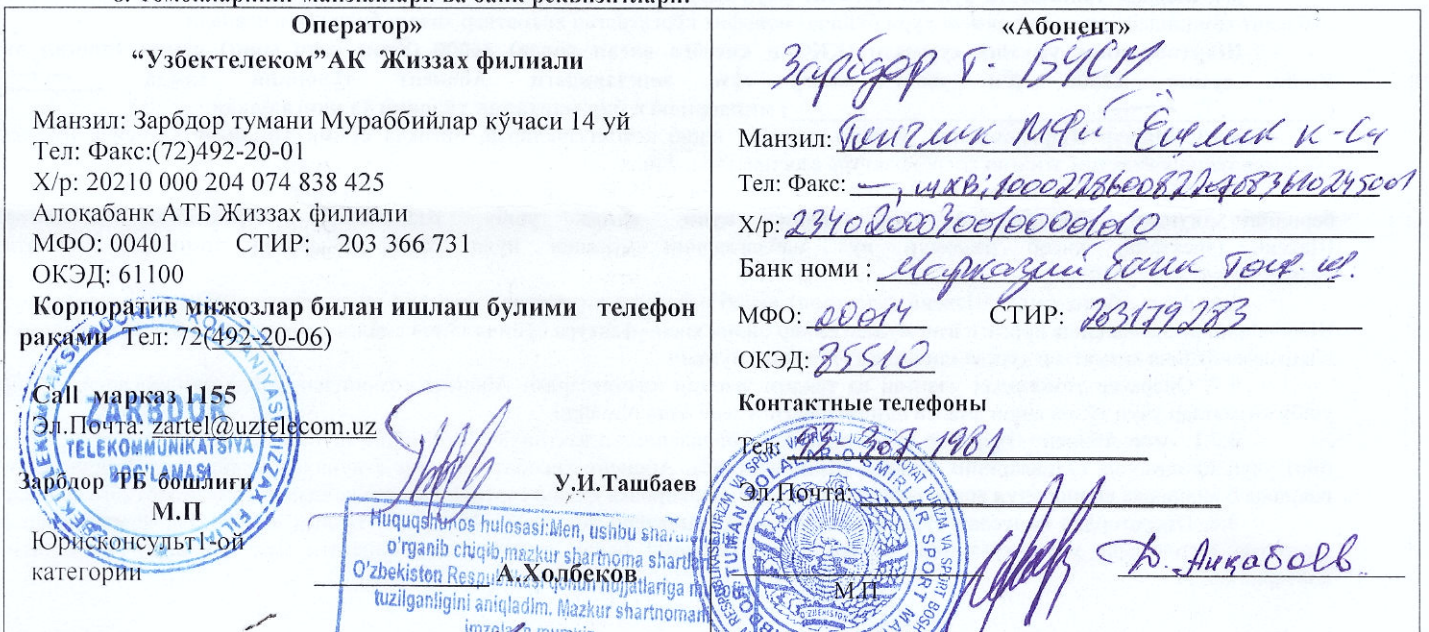 Оператор»
“Узбектелеком”АК Жиззах филиали
Манзил: Зарбдор тумани Мураббийлар кўчаси 14 уй
Тел: Факс:(72)492-20-01
Х/р: 20210 000 204 074 838 425
Алоқабанк АТБ Жиззах филиали
МФО: 00401 СТИР: 203 366 731
ОКЭД: 61100
Корпоратив мижозлар билан ишлаш булими телефон
рақами Тел: 72(492-20-06)
Call марказ 1155
Эл.Почта: zartel@uztelecom.uz
Зарбдор ТБ бошлиғи У.И.Ташбаев
М.П
Юрисконсульт1-ой
категории А.Холбеков
ZARBDOR
TELEKOMMUNIKATSIYA
BOG'LAMASI
Huquqshunos hulosasi:Men, ushbu
o'rganib chiqib,mazkur shartnoma
O'zbekiston qonun hujjatlariga
tuzilganligini aniqladim. Mazkur shartnomani
«Абонент»
Зарбдор т. БЎСМ
Манзил: Тинчлик МФй Ёшлик к-си
Тел: Факс:
Х/р:
Банк номи : Марказий банк Тош. ш.
МФО: 00014 СТИР: 203179283
ОКЭД: 85510
Контактные телефоны
Тел: 93 307 1981
Эл.Почта:
М.П